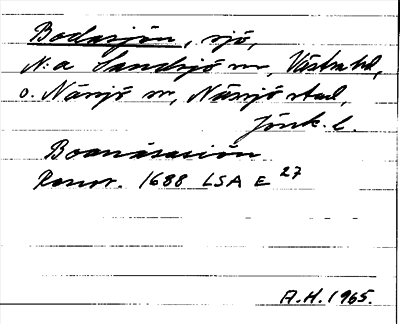 Bodasjön, sjö,
N:a Sandsjö sn, Västra hd,
o. Nässjö sn, Nässjö stad,
Jönk. l.
Boanäsasiön
Renov. 1688 LSA E 27
A.H. 1965.